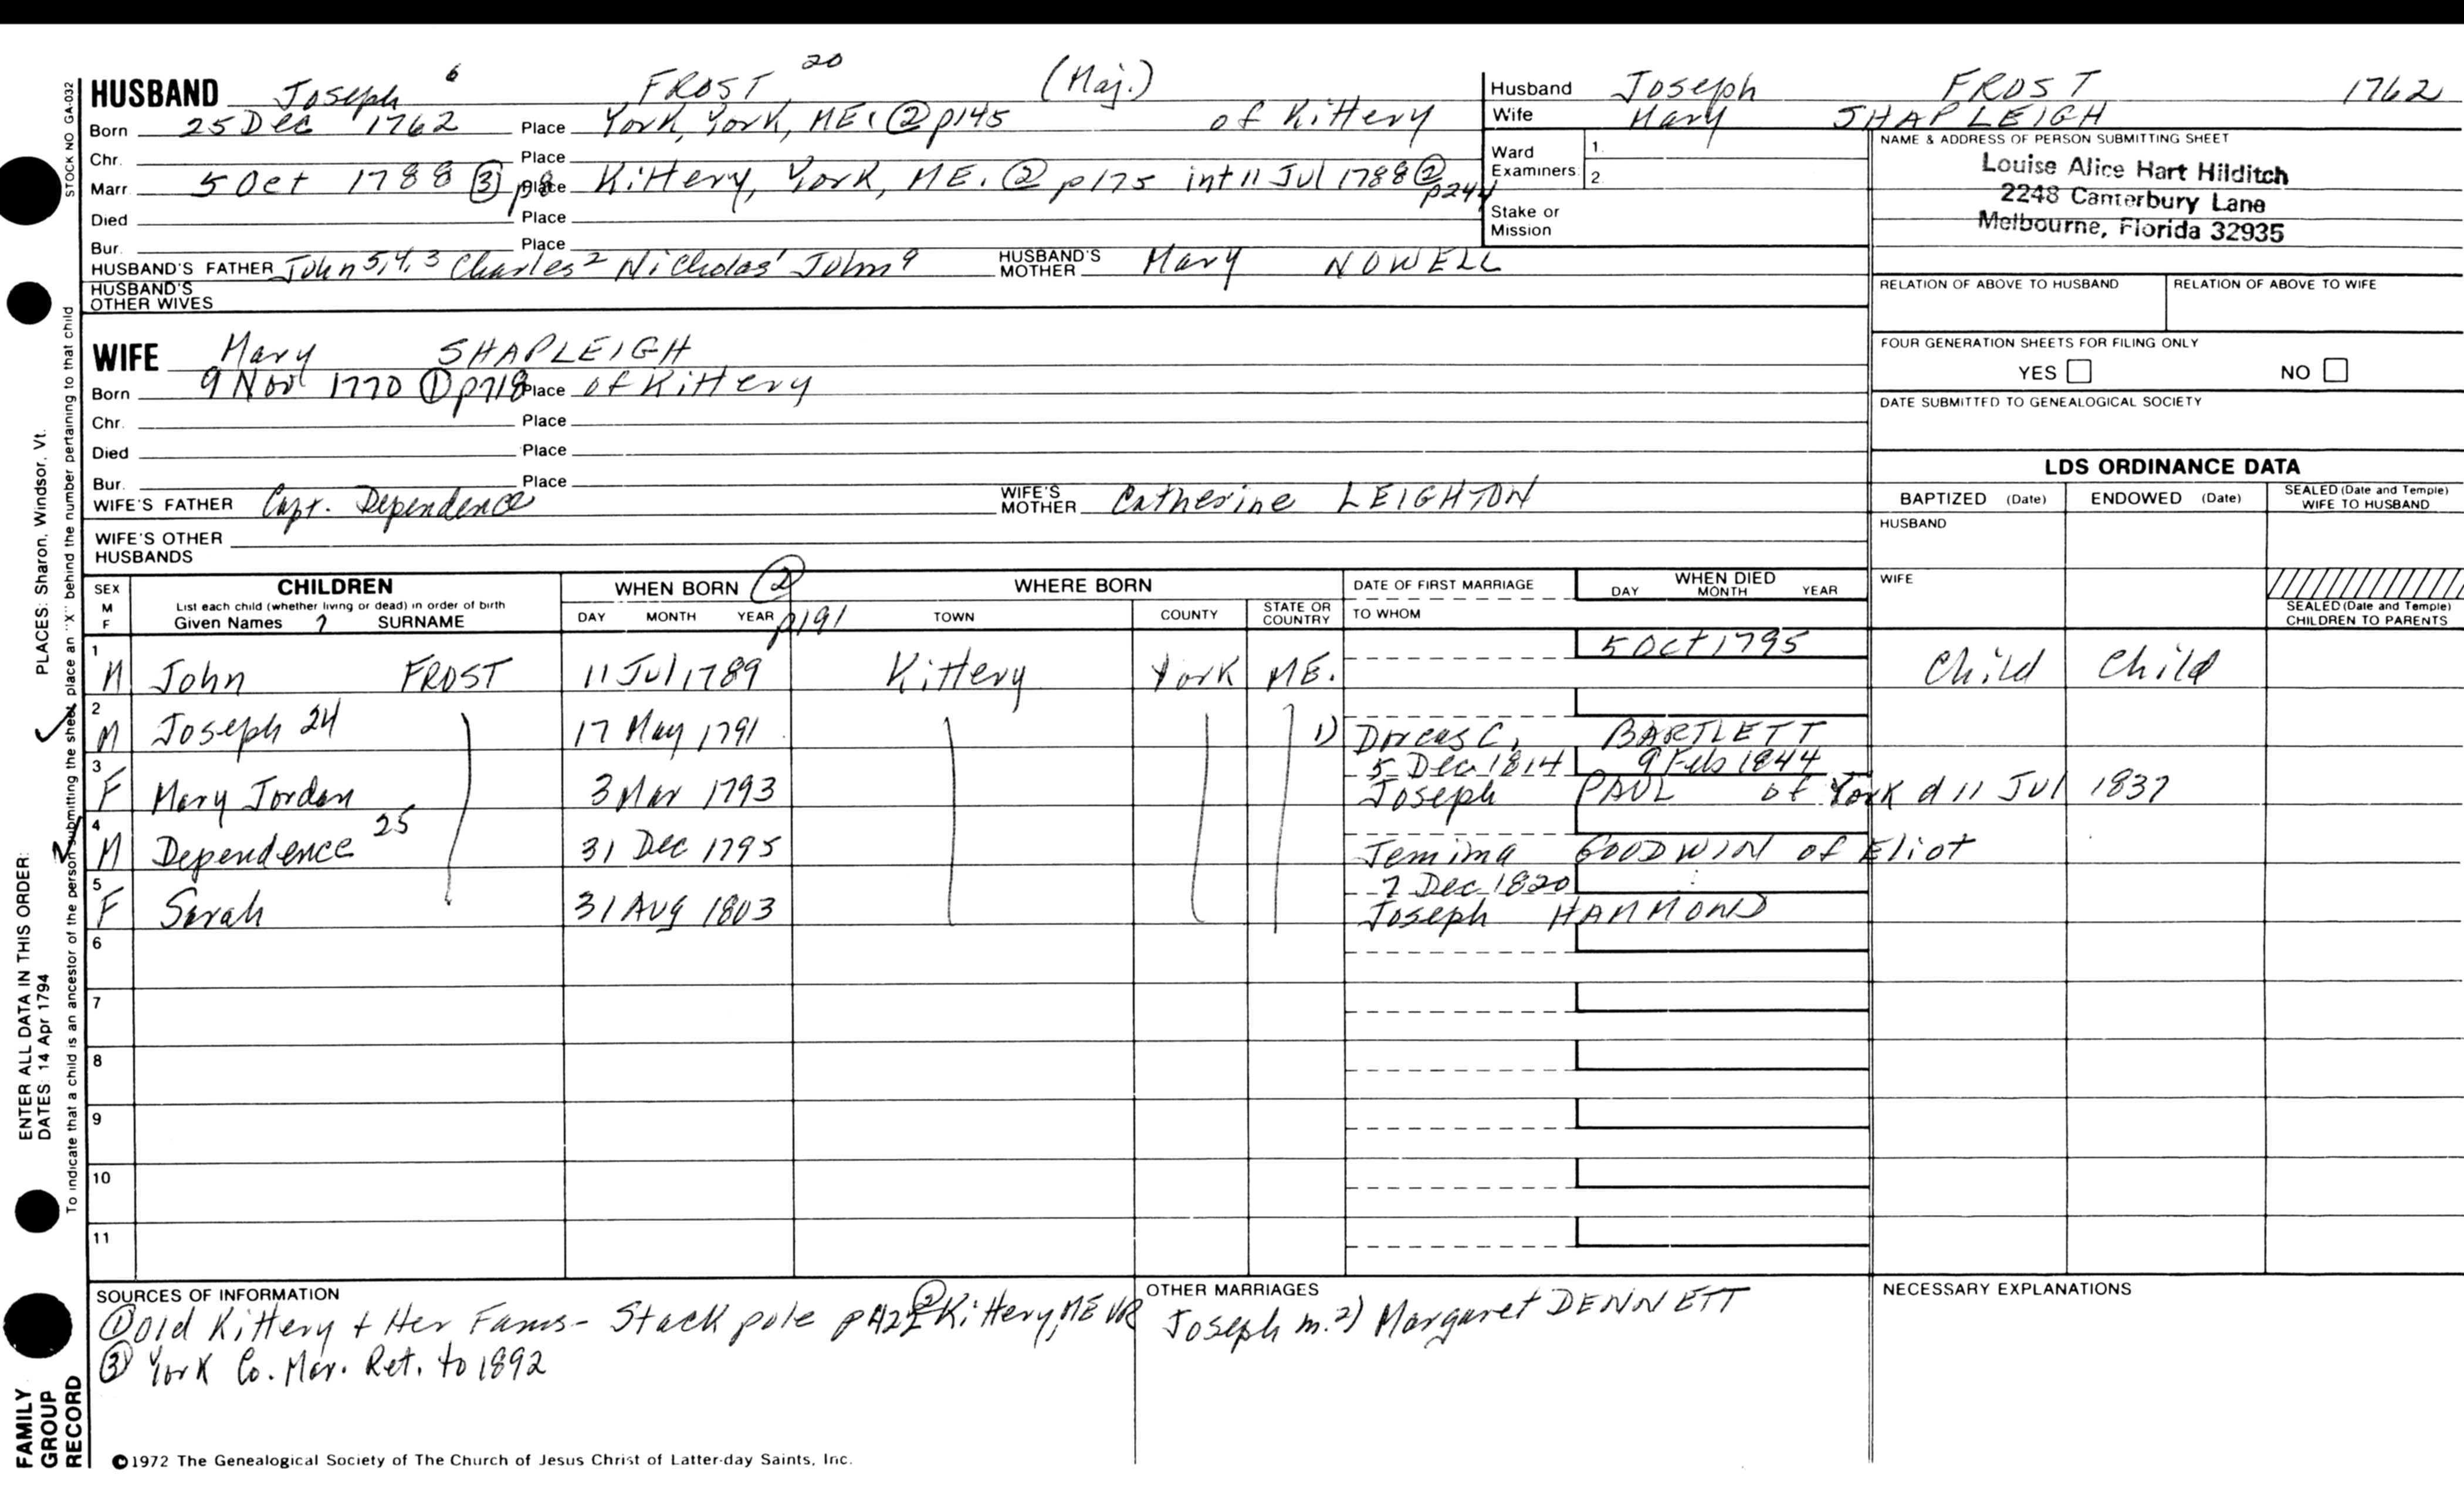 HUSBAND Joseph 6 FROST 20 (Maj.)
Born 25 Dec 1762 Place York, York, ME. ② p145 of Kittery
Chr. Place
Marr. 5 Oct 1788 ③ p8 Place Kittery, York, ME. ② p175 int 11 Jul 1788 ② p244
Died Place
Bur. Place
HUSBAND'S FATHER John 5,4,3 Charles 2 Nicholas 1 John 9 HUSBAND'S MOTHER Mary NOWELL
HUSBAND'S OTHER WIVES
Husband Joseph FROST 1762
Wife Mary SHAPLEIGH
Ward Examiners: 1. 2.
Stake or Mission
NAME & ADDRESS OF PERSON SUBMITTING SHEET
Louise Alice Hart Hilditch
2248 Canterbury Lane
Melbourne, Florida 32935
RELATION OF ABOVE TO HUSBAND RELATION OF ABOVE TO WIFE
FOUR GENERATION SHEETS FOR FILING ONLY
YES NO
DATE SUBMITTED TO GENEALOGICAL SOCIETY
WIFE Mary SHAPLEIGH
Born 9 Nov 1770 ① p718 Place of Kittery
Chr. Place
Died Place
Bur. Place
WIFE'S FATHER Capt. Dependence WIFE'S MOTHER Catherine LEIGHTON
WIFE'S OTHER HUSBANDS
LDS ORDINANCE DATA
BAPTIZED (Date) ENDOWED (Date) SEALED (Date and Temple) WIFE TO HUSBAND
HUSBAND
WIFE
SEALED (Date and Temple) CHILDREN TO PARENTS
SEX M F CHILDREN List each child (whether living or dead) in order of birth Given Names 7 SURNAME
WHEN BORN ② p191 DAY MONTH YEAR
WHERE BORN TOWN COUNTY STATE OR COUNTRY
DATE OF FIRST MARRIAGE TO WHOM
WHEN DIED DAY MONTH YEAR
5 Oct 1795
1 M John FROST 11 Jul 1789 Kittery York ME. Child Child
2 M Joseph 24 17 May 1791 1) Dorcas C. BARTLETT
5 Dec 1814 9 Feb 1844
3 F Mary Jordan 3 Mar 1793 Joseph PAUL of York d 11 Jul 1837
4 M Dependence 25 31 Dec 1795 Jemima GOODWIN of Eliot
7 Dec 1820
5 F Sarah 31 Aug 1803 Joseph HAMMOND
6
7
8
9
10
11
SOURCES OF INFORMATION
① Old Kittery + Her Fams - Stackpole ② Kittery, ME VR
③ York Co. Mar. Ret. to 1892
OTHER MARRIAGES
Joseph m. 2) Margaret DENNETT
NECESSARY EXPLANATIONS
©1972 The Genealogical Society of The Church of Jesus Christ of Latter-day Saints, Inc.
STOCK NO GA-032
To indicate that a child is an ancestor of the person submitting the sheet, place an "X" behind the number pertaining to that child
PLACES: Sharon, Windsor, Vt.
ENTER ALL DATA IN THIS ORDER:
DATES 14 Apr 1794
FAMILY
GROUP
RECORD